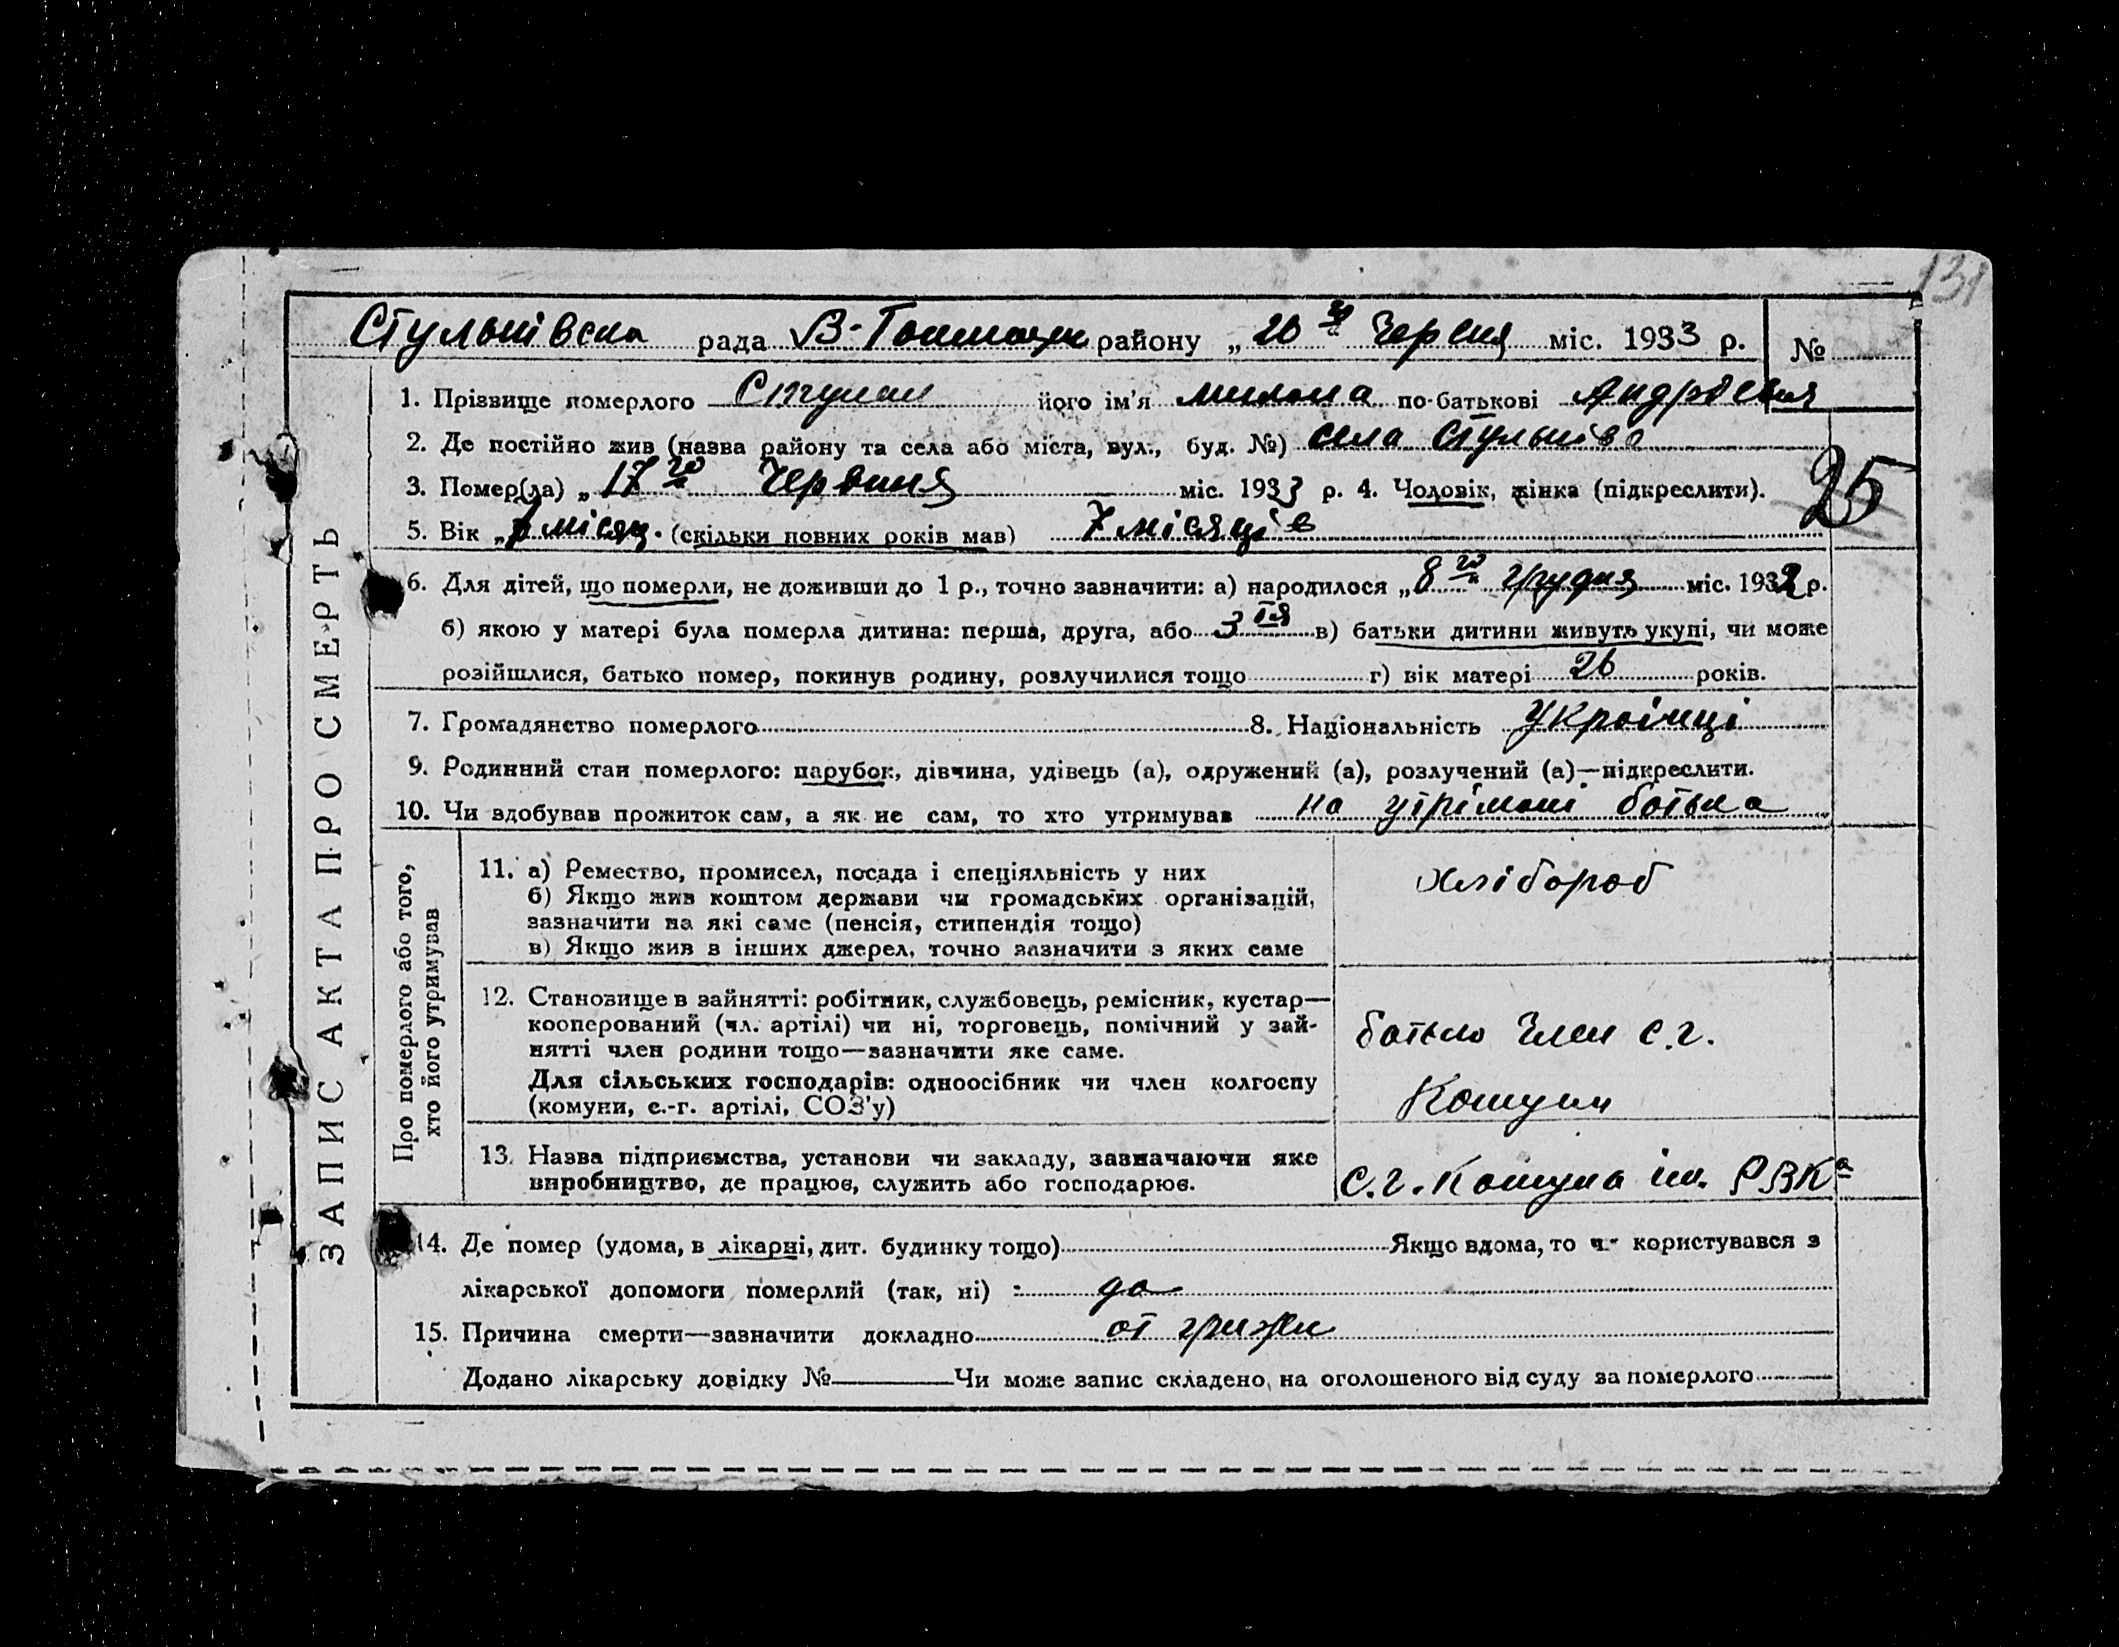 131
Стульнівска рада В-Токмацьк району „26 го Червня міс. 1933 р. №
1. Прізвище померлого його ім'я по-батькові
2. Де постійно жив (назва району та села або міста, вул., буд. №) села Стульніво
3. Помер(ла) „17 го Червиня міс. 1933 р. 4. Чоловік, жінка (підкреслити).
25
5. Вік „ місяц. (скільки повних років мав) 7 місяців
6. Для дітей, що померли, не доживши до 1 р., точно зазначити: а) народилося „8 го грудня міс. 1932 р.
б) якою у матері була померла дитина: перша, друга, або 3 тя в) батьки дитини живуть укупі, чи може
розійшлися, батько помер, покинув родину, розлучилися тощо г) вік матері 26 років.
7. Громадянство померлого 8. Національність Украінці
9. Родинний стан померлого: парубок, дівчина, удівець (а), одружений (а), розлучений (а)—підкреслити.
10. Чи здобував прожиток сам, а як не сам, то хто утримував на утрімані батька
ЗАПИС АКТА ПРО СМЕРТЬ
Про померлого або того,
хто його утримував
11. а) Ремество, промисел, посада і спеціяльність у них
б) Якщо жив коштом держави чи громадських організацій,
зазначити на які саме (пенсія, стипендія тощо)
в) Якщо жив в інших джерел, точно зазначити з яких саме
хлібороб
12. Становище в зайнятті: робітник, службовець, ремісник, кустар—
кооперований (чл. артілі) чи ні, торговець, помічний у зай-
нятті член родини тощо—зазначити яке саме.
Для сільських господарів: одноосібник чи член колгоспу
(комуни, с.-г. артілі, СОЗ'у)
батько член с.г.
Комуни
13. Назва підприємства, установи чи закладу, зазначаючи яке
виробництво, де працює, служить або господарює.
с.г. Комуна ім. РВКа
14. Де помер (удома, в лікарні, дит. будинку тощо) Якщо вдома, то чи користувався з
лікарської допомоги померлий (так, ні) да
15. Причина смерти—зазначити докладно от грижи
Додано лікарську довідку № Чи може запис складено на оголошеного від суду за померлого